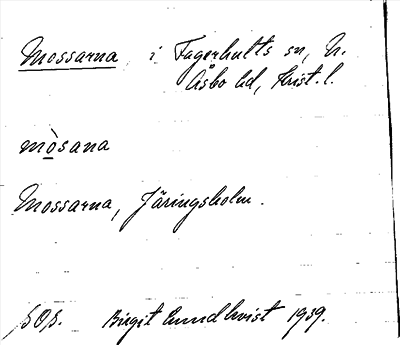 Mossarna i Fagerhults sn, N.
Åsbo hd, Krist. l.
mòsana
Mossarna, Järingsholm.
Birgit Lundkvist 1939.